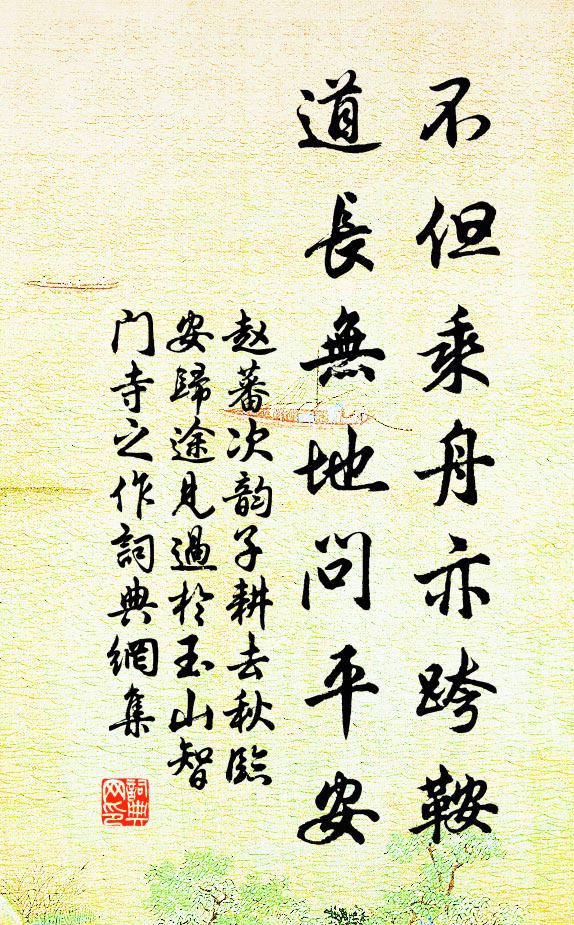 不但乘舟亦跨鞍
道長無地問平安
赵蕃次韵子耕去秋臨
安歸途見過於玉山智
门寺之作詞典網集
詞典网印